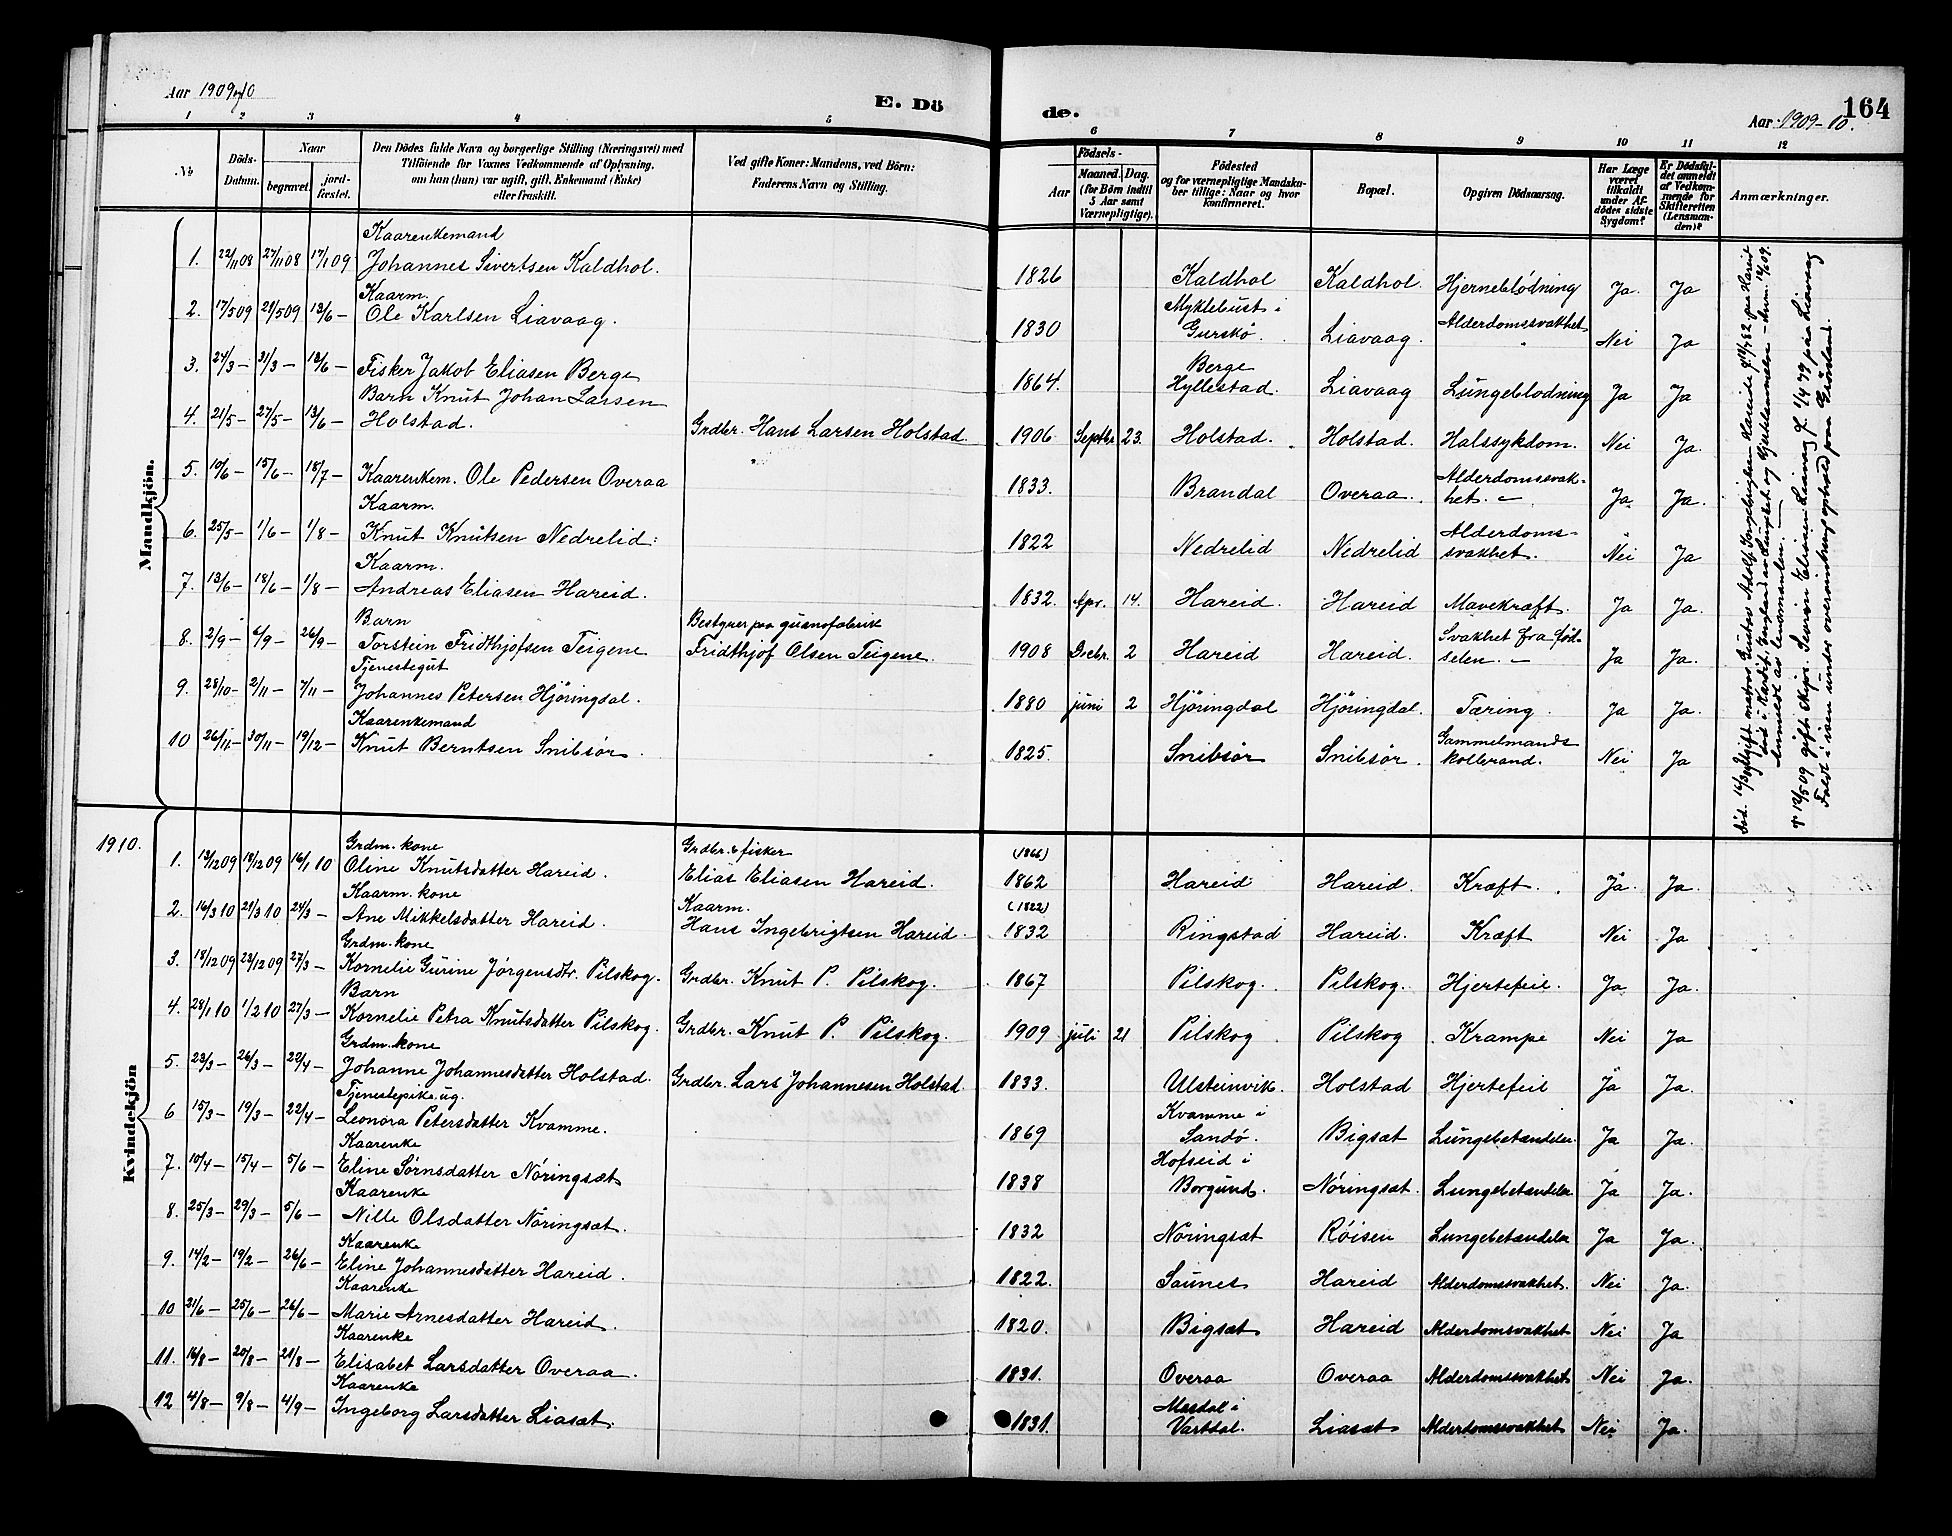 Aar 1909 og 10
E. Dö
de.
Aar 1909-10.
164
1 2 3 4 5 6 7 8 9 10 11 12
No
Döds-Datum.
Naar
begravet.
jord-fæstet.
Den Dödes fulde Navn og borgerlige Stilling (Næringsvei) med
Tilföiende for Voxnes Vedkommende af Oplysning,
om han (hun) var ugift, gift, Enkemand (Enke)
eller fraskilt.
Ved gifte Koner: Mandens, ved Börn:
Faderens Navn og Stilling.
Födsels-
Aar
Maaned. Dag.
(for Börn indtil
5 Aar samt
Værnepligtige).
Födested
og for værnepligtige Mandska-
ber tillige: Naar og hvor
konfirmeret.
Bopæl.
Opgiven Dödsaarsag.
Har Læge
været
tilkaldt
under Af-
dödes sidste
Sygdom?
Er Dödsfal-
det anmeldt
af Vedkom-
mende for
Skifteretten
(Lensman-
den)?
Anmærkninger.
Mandkjön.
Kaarenkemand
1. 22/11 08 27/11 08 17/1 09 Johannes Sivertsen Kaldhol. 1826 Kaldhol Kaldhol. Hjerneblödning Ja. Ja
Kaarm. Myklebust i
2. 17/5 09 21/5 09 13/6 - Ole Karlsen Liavaag. 1830 Gurskö. Liavaag. Alderdomssvakhet Nei Ja
Berge
3. 24/3 - 31/3 - 13/6 - Fisker Jakob Eliasen Berge 1864. Hyllestad. Liavaag Lungeblödning Ja Ja
Barn Knut Johan Larsen
4. 21/5 - 27/5 - 13/6 - Holstad. Grdbr. Hans Larsen Holstad. 1906 Septbr. 23. Holstad. Holstad. Halssykdom. Nei Ja.
5. 10/6 - 15/6 - 18/7 - Kaarenkem. Ole Pedersen Overaa 1833. Brandal Overaa. Alderdomssvak-
het. - Ja Ja.
Kaarm.
6. 25/5 - 1/6 - 1/8 - Knut Knutsen Nedrelid. 1822 Nedrelid Nedrelid Alderdoms-
svakhet. Nei Ja
Kaarm.
7. 13/6 - 18/6 - 1/8 - Andreas Eliasen Hareid. 1832. Apr. 14. Hareid. Hareid Mavekræft. Ja Ja.
Barn Bestyrer paa guanofabrik
8. 2/9 - 6/9 - 26/9 - Torstein Fridthjofsen Teigene Fridthjof Olsen Teigene. 1908 Decbr. 2 Hareid Hareid. Svakhet fra föd-
selen. - Ja Ja.
Tjenestegut
9. 28/10 - 2/11 - 7/11 - Johannes Petersen Hjöringdal. 1880 juni 2 Hjöringdal Hjöringdal. Tæring. Ja Ja.
Kaarenkemand
10 26/11 - 30/11 - 19/12 - Knut Berntsen Snibsör. 1825. Snibsör Snibsör. Gammelmands
kolbrand. Nei Ja
1910.
Kvindekjön
Grdm. kone Grdbr. & fisker (1866)
1. 13/12 09 18/12 09 16/1 10 Oline Knutsdatter Hareid. Elias Eliasen Hareid. 1862 Hareid Hareid. Kræft. Ja. Ja.
Kaarm. kone Kaarm. (1822)
2. 16/3 10 21/3 10 24/3 - Ane Mikkelsdatter Hareid. Hans Ingebrigtsen Hareid. 1832 Ringstad Hareid. Kræft Nei Ja
Grdm. kone
3. 18/12 09 23/12 09 27/3 - Kornelie Gurine Jörgensdtr. Pilskog. Grdbr. Knut P. Pilskog. 1867 Pilskog. Pilskog. Hjertefeil. Ja Ja.
Barn
4. 28/1 10 1/2 10 27/3 - Kornelie Petra Knutsdatter Pilskog. Grdbr. Knut P. Pilskog. 1909 juli 21 Pilskog Pilskog Krampe Nei Ja
Grdm. kone
5. 23/3 - 26/3 - 22/4 - Johanne Johannesdatter Holstad. Grdbr. Lars Johannesen Holstad 1833. Ulsteinvik. Holstad Hjertefeil Ja Ja.
Tjenestepike ug. Kvamme i
6 15/3 - 19/3 - 22/4 - Leonora Petersdatter Kvamme. 1869 Sandö. Bigsæt Lungebetændelse Ja Ja.
Kaarenke Hofseid i
7. 10/4 - 15/4 - 5/6 - Eline Sörnsdatter Nöringsæt 1838 Borgund. Nöringsæt. Lungebetændelse Ja Ja.
Kaarenke
8. 25/3 - 29/3 - 5/6 - Nille Olsdatter Nöringsæt. 1832 Nöringsæt Röisen Lungebetændelse Ja Ja.
Kaarenke
9. 14/2 - 19/2 - 26/6 - Eline Johannesdatter Hareid. 1822. Saunes Hareid Alderdomssvakhet. Nei Ja.
Kaarenke
10 21/6 - 25/6 - 26/6 - Marie Arnesdatter Hareid. 1820. Bigsæt Hareid Alderdomssvakhet Nei Ja
Kaarenke
11. 16/8 - 20/8 - 21/8 - Elisabet Larsdatter Overaa. 1831. Overaa Overaa Alderdomssvakhet Nei Ja.
Kaarenke Masdal i
12 4/8 - 9/8 - 4/9 - Ingeborg Larsdatter Liasæt. 1831. Vartdal. Liasæt Alderdomssvakhet Nei Ja.
matros Gustav Adolf Ingebrigtsen Hareide f. 82 paa Hareid
död i Kardif, England
anmeldt av lensmanden. -
12/5 09 gift skipr. Severin Eliasen Liavaag f. 1/4 79 paa Liavaag
Faldt i isen under overvintring ophold paa Grönland.